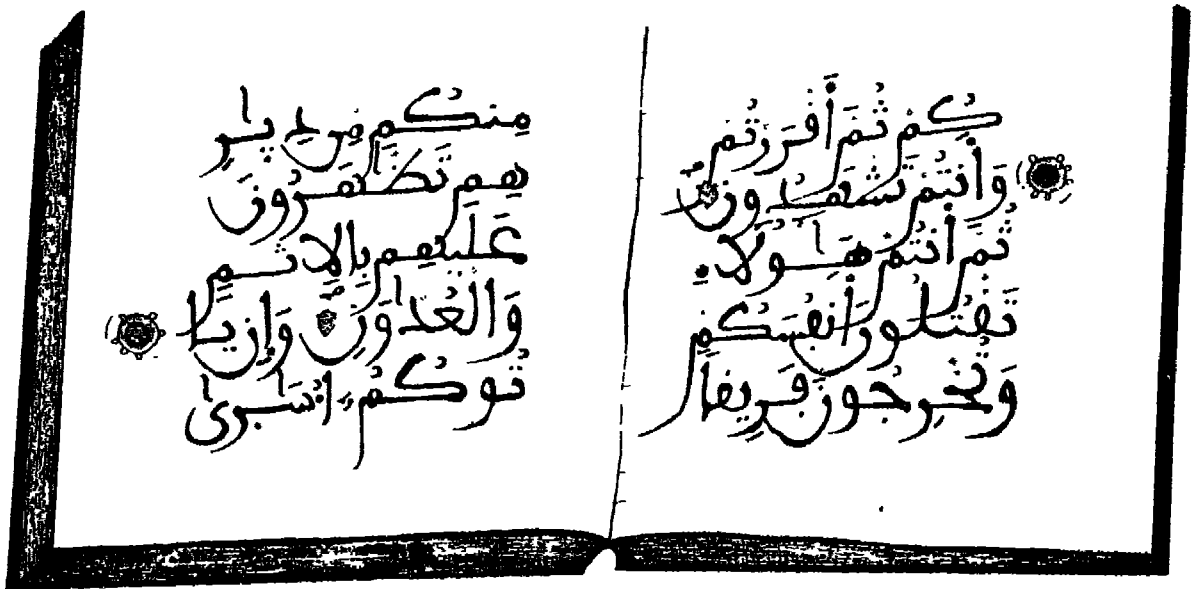 كُمْ ثُمَّ أَقْرَرْتُمْ
وَأَنتُمْ تَشْهَدُونَ
ثُمَّ أَنتُمْ هَٰؤُلَاءِ
تَقْتُلُونَ أَنفُسَكُمْ
وَتُخْرِجُونَ فَرِيقًا
مِنكُم مِّن دِيَٰرِ
هِمْ تَظَّٰهَرُونَ
عَلَيْهِم بِالْإِثْمِ
وَالْعُدْوَٰنِ وَإِن يَا
تُوكُمْ أُسَٰرَىٰ